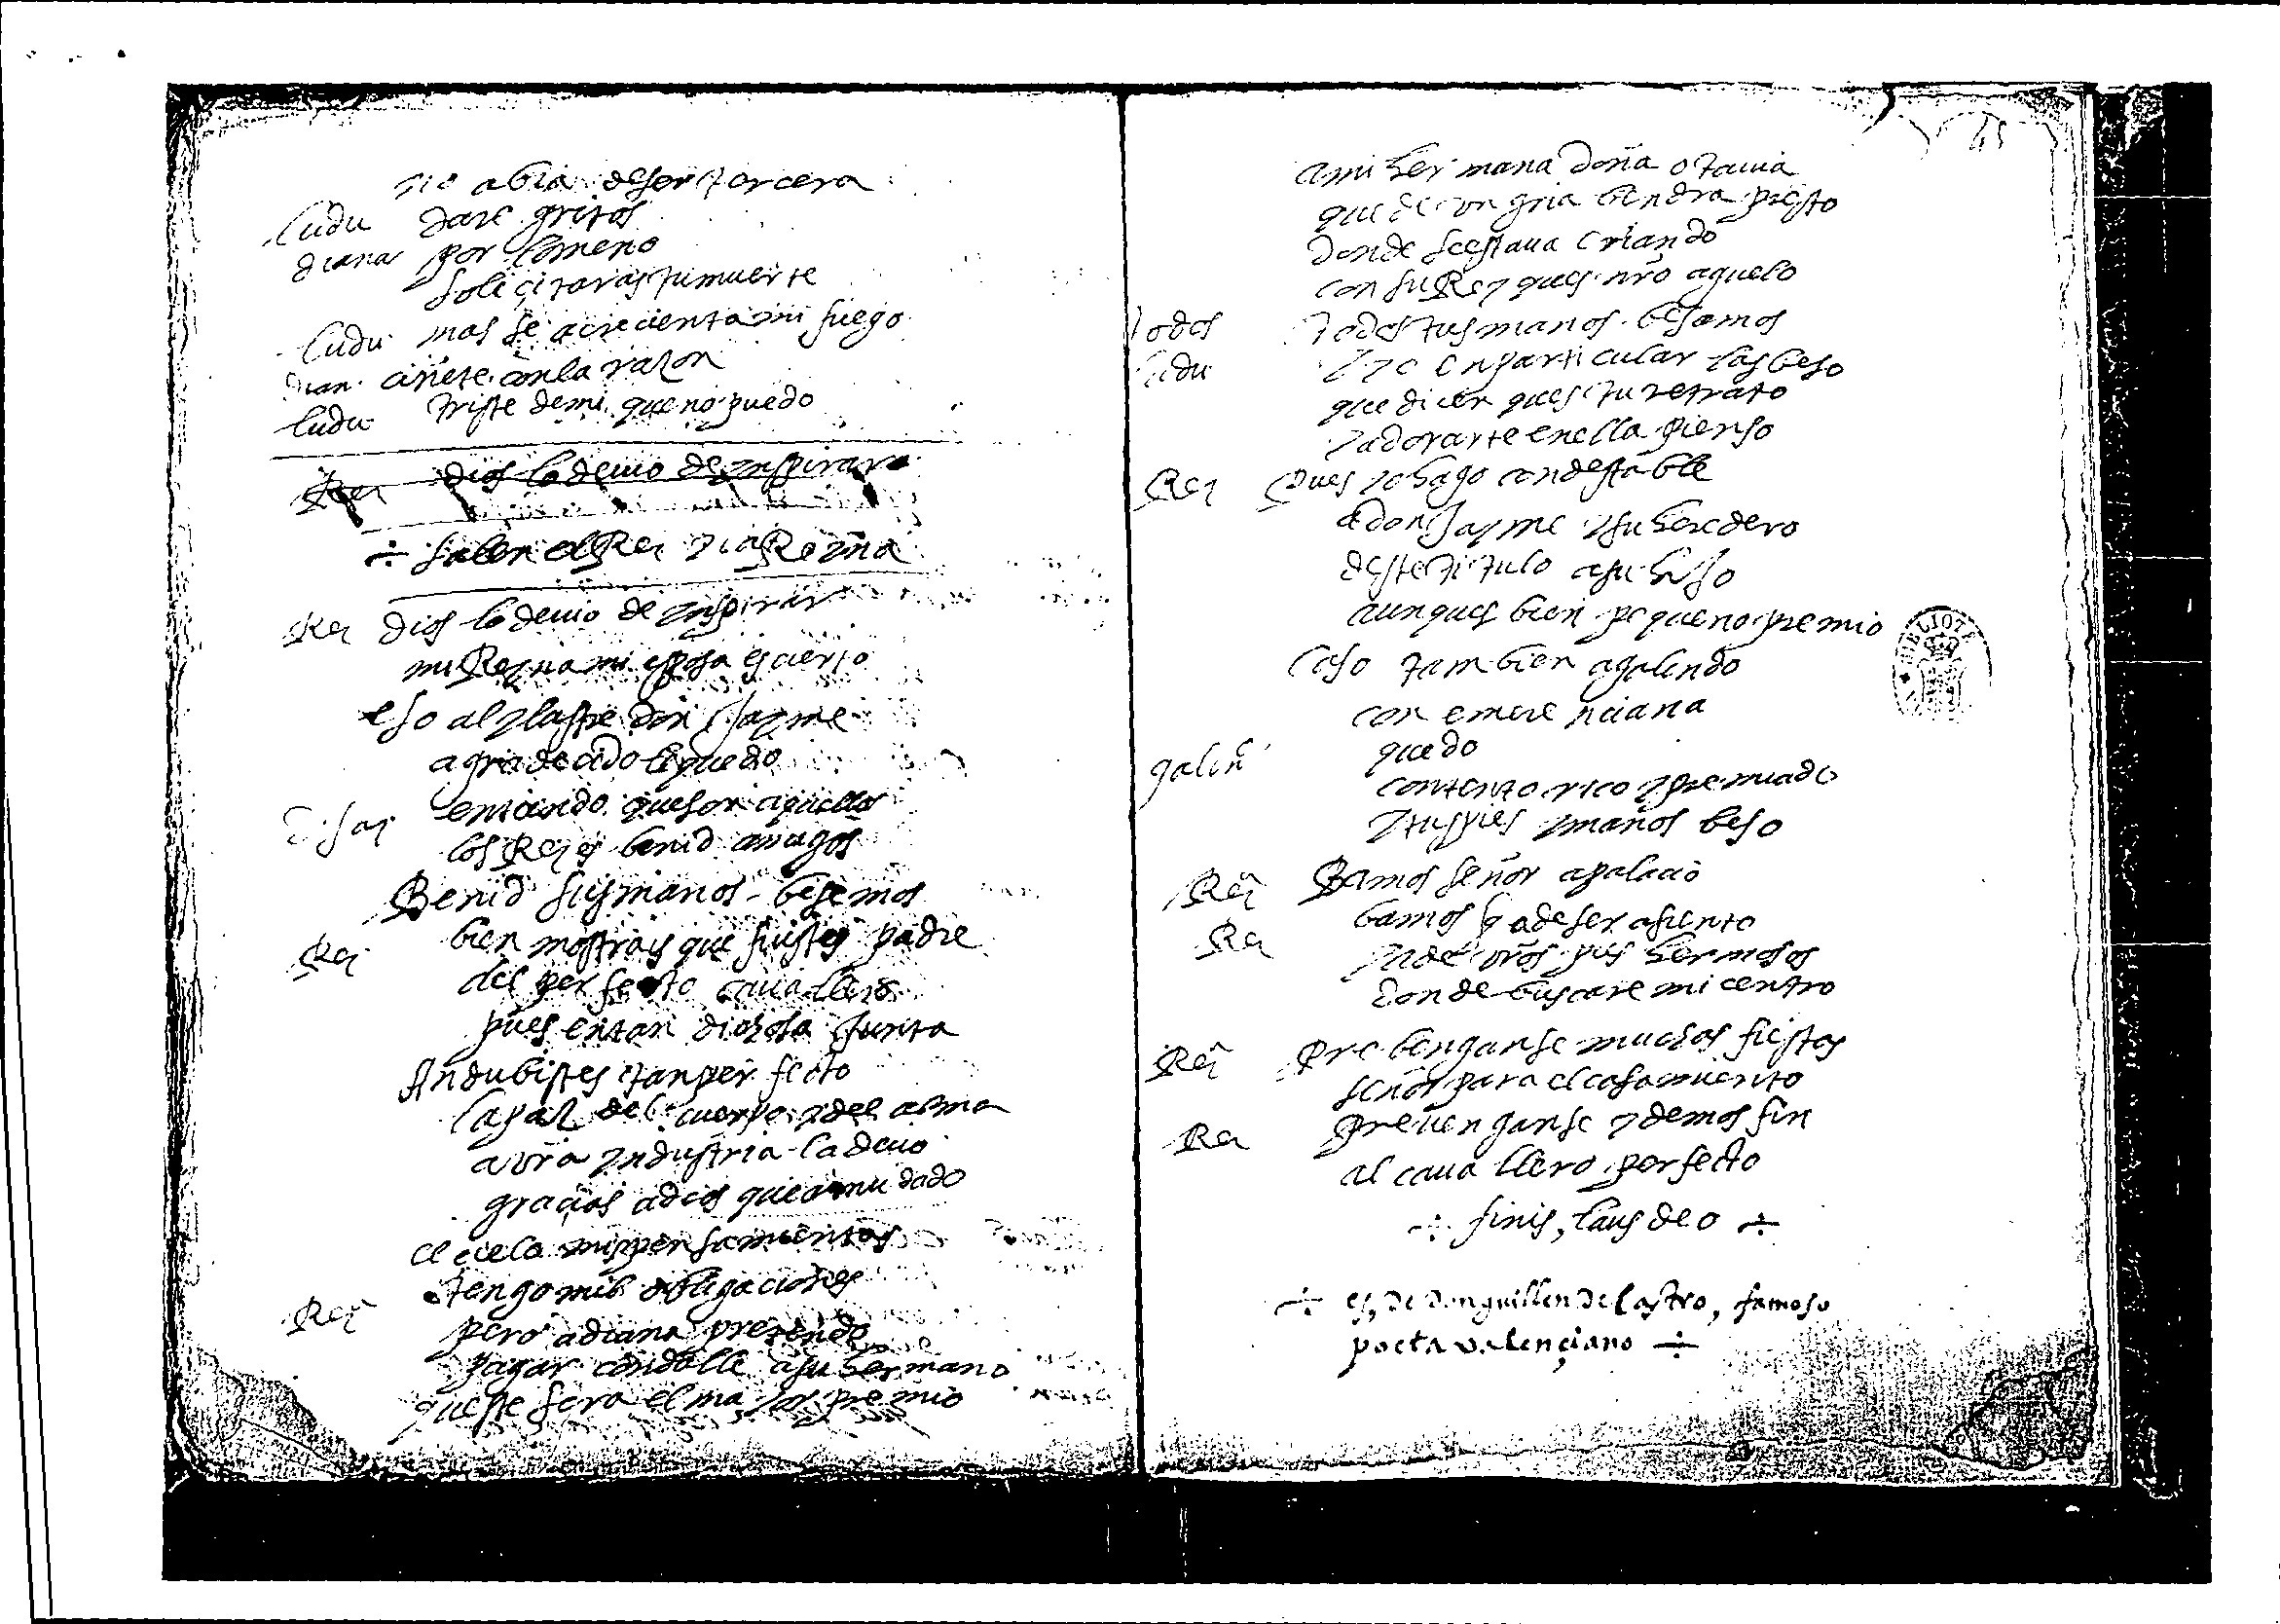 no abia de ser tercera
ludu dare gritos
diana por lo meno
soliçitaras tu muerte
ludu mas se acrecienta mi fuego
dian ciñete con la razon
ludu triste de mi que no puedo
Rey dios lo deuio de ynspirar
÷ salen el Rey y la Reyna
Rey dios lo deuio de ynspirar
mi Reyna mi esposa es cierto
eso al ylustre don Jayme
agradecido le quedo
entiendo que son aquellos
los Reyes benid amigos
Benid sus manos besemos
Rey bien mostrays que fuistes padre
del perfecto cauallero
pues en tan dichosa junta
Andubistes tan perfecto
la paz del cuerpo y del alma
a vra yndustria la deuo
gracias a dios que a mudado
el cielo mis pensamientos
Reyª tengo mil obligaciones
pero a diana pretendo
pagar con dalle a su hermano
queste sera el mayor premio
a mi hermana doña otauia
que de vngria bendra presto
donde se estaua criando
con su Rey ques nro aguelo
todos todos tus manos besamos
ludu y yo en particular las beso
que dicen ques tu retrato
y adorarte en ella pienso
Rey Pues yo hago condestable
a don Jayme y su heredero
deste titulo a su hijo
aunques bien pequeno premio
Caso tambien a galindo
con emerenciana
galin quedo
contento rico y premiado
y tus pies y manos beso
Reª Bamos señor a palacio
Rey bamos q a de ser asiento
yn de vros pies hermosos
donde buscare mi centro
Reª Prebenganse muchas fiestas
señor para el casamiento
Rey preuenganse y demos fin
al cauallero perfecto
÷ finis, laus deo ÷
÷ es, de don guillen de Castro, famoso
poeta valençiano ÷
45
BIBLIOTE